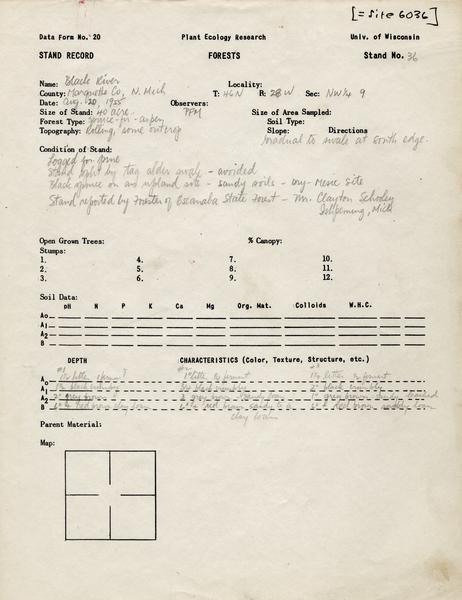 [= site 6036]
Data Form No. 20 Plant Ecology Research Univ. of Wisconsin
STAND RECORD FORESTS Stand No. 36
Name: Black River Locality:
County: Marquette Co, N. Mich T: 46N R: 28W Sec: NW 1/4 9
Date: Aug. 20, 1955 Observers:
Size of Stand: 40 acre PFM Size of Area Sampled:
Forest Type: spruce-fir-aspen Soil Type:
Topography: Rolling, some outcrop Slope: Directions
Gradual to swale at south edge.
Condition of Stand:
Logged for pine
Stand split by tag alder swale - avoided
Black spruce on an upland site - sandy soils - dry-mesic site
Stand reported by Forester of Escanaba State Forest - Mr. Clayton
Ishpeming, Mich
Open Grown Trees: % Canopy:
Stumps:
1. 4. 7. 10.
2. 5. 8. 11.
3. 6. 9. 12.
Soil Data:
pH N P K Ca Mg Org. Mat. Colloids W.H.C.
Ao
A1
A2
B
DEPTH CHARACTERISTICS (Color, Texture, Structure, etc.)
#1 #2 #3
Ao litter 1" litter &
A1 black black crumbly
A2 2" grey brown grey brown sandy loam 1" grey brown
B red brown red brown sandy red brown
clay loam
Parent Material:
Map: